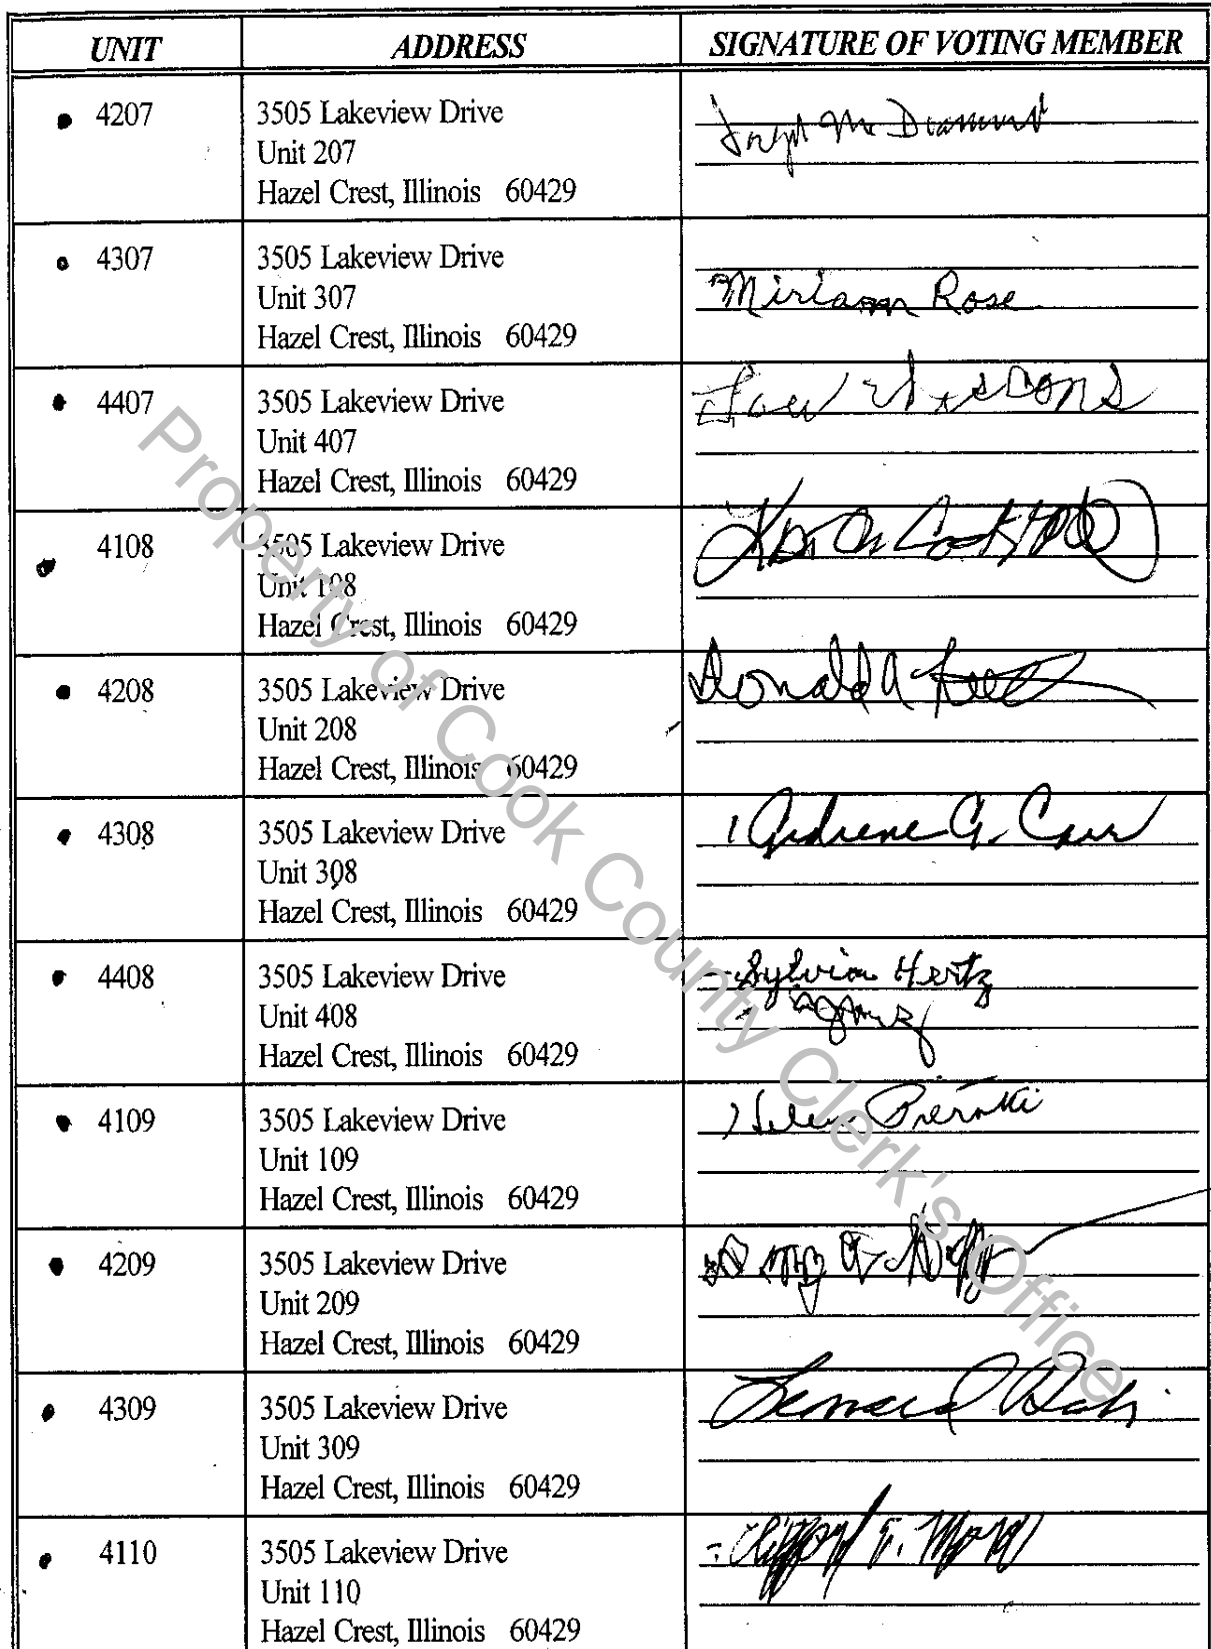 UNIT ADDRESS SIGNATURE OF VOTING MEMBER
4207 3505 Lakeview Drive
Unit 207
Hazel Crest, Illinois 60429
4307 3505 Lakeview Drive
Unit 307 Miriam Rose
Hazel Crest, Illinois 60429
4407 3505 Lakeview Drive
Unit 407
Hazel Crest, Illinois 60429
4108 3505 Lakeview Drive
Unit 108
Hazel Crest, Illinois 60429
4208 3505 Lakeview Drive Donald A
Unit 208
Hazel Crest, Illinois 60429
4308 3505 Lakeview Drive
Unit 308
Hazel Crest, Illinois 60429
4408 3505 Lakeview Drive Sylvia Hertz
Unit 408
Hazel Crest, Illinois 60429
4109 3505 Lakeview Drive Helen
Unit 109
Hazel Crest, Illinois 60429
4209 3505 Lakeview Drive
Unit 209
Hazel Crest, Illinois 60429
4309 3505 Lakeview Drive
Unit 309
Hazel Crest, Illinois 60429
4110 3505 Lakeview Drive
Unit 110
Hazel Crest, Illinois 60429
Property of Cook County Clerk's Office